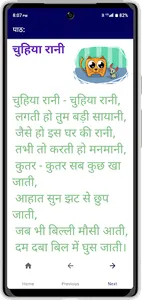 8:07 PM
82%
पाठ:
चुहिया रानी
चुहिया रानी - चुहिया रानी,
लगती हो तुम बड़ी सायानी,
जैसे हो इस घर की रानी,
तभी तो करती हो मनमानी,
कुतर - कुतर सब कुछ खा
जाती,
आहात सुन झट से छुप
जाती,
जब भी बिल्ली मौसी आती,
दम दबा बिल में घुस जाती।
Home Previous Next